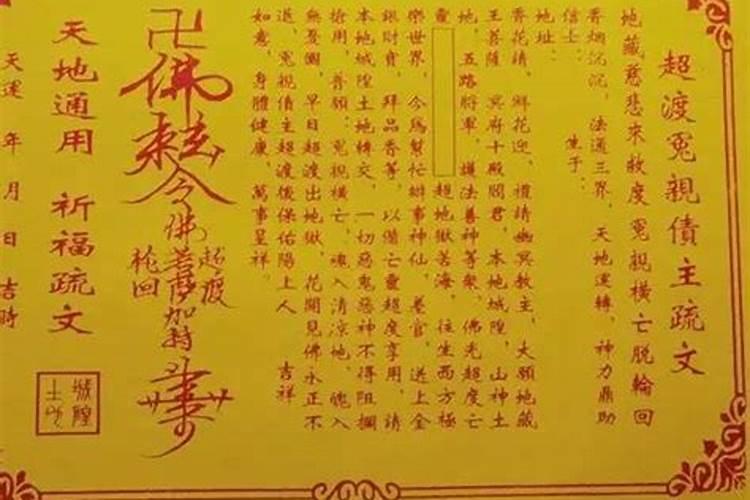 超渡冤親債主疏文
地藏慈悲來救度冤親橫亡脫輪回
香烟沉沉，法通三界，天地運轉，神力鼎助
信士： 生于：
地址：
香花請，鮮花迎，禮請幽冥教主，大願地藏
王菩薩 冥府十殿閻君，本地城隍，山神土
地，五路將軍，護法善神等衆，佛光超度亡
靈 超地獄苦海，往生西方極
樂世界，今爲幫忙辦事神仙，差官，送上金
銀財寶，拜品香等，以備亡靈超度享用，請
本地城隍土地轉交，一切惡鬼惡神不得阻攔
搶用，普願：冤親橫亡，魂入清凉地，魄入
無憂國，早日超渡出地獄，花開見佛永正不
退，冤親債主超渡後保佑陽上人 吉祥
如意，身體健康，萬事呈祥。
卍
佛
令
佛菩薩加持
超渡
輪回
天地通用 祈福疏文
城隍
土地
天運 年 月 日 吉時